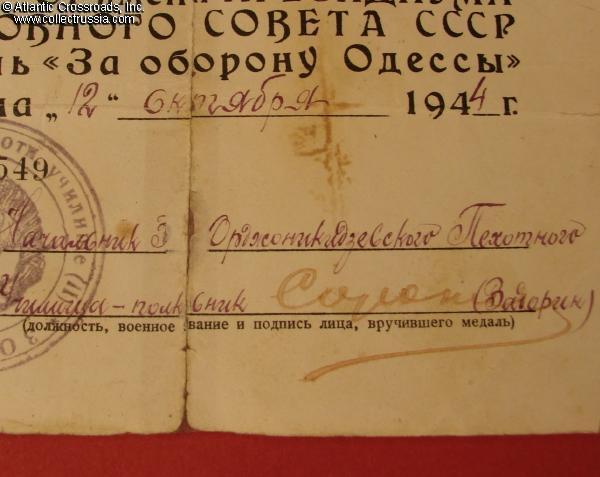 © Atlantic Crossroads, Inc.
www.collectrussia.com
ОВНОГО СОВЕТА СССР
ль «За оборону Одессы»
на „12“ октября 1944 г.
549
Начальник 3 Орджоникидзевского Пехотного
Училища-полковник (Захорин)
(должность, военное звание и подпись лица, вручившего медаль)